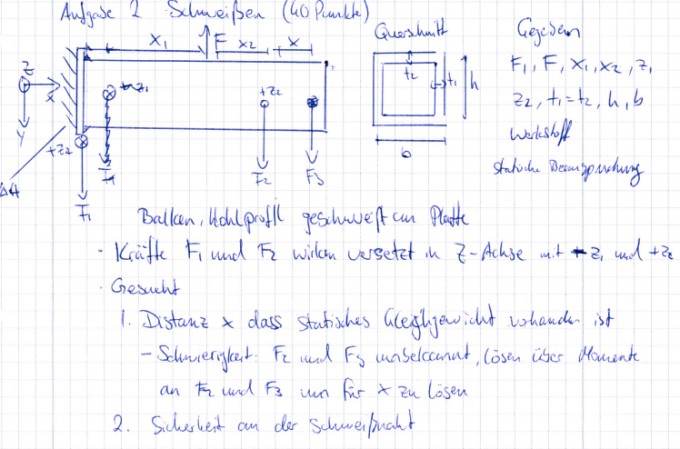 Aufgabe 2 Schweißen (40 Punkte)
x1 F x2 x
Querschnitt
t2 t1 h
b
Gegeben
F1, F, x1, x2, z1
z2, t1=t2, h, b
Werkstoff
statische Beanspruchung
z x y
-z1 +z2
+z2
F1 F2 F3
Balken, Hohlprofil geschweißt an Platte
· Kräfte F1 und F2 wirken versetzt in Z-Achse mit -z1 und +z2
· Gesucht
1. Distanz x dass statisches Gleichgewicht vorhanden ist
- Schwierigkeit: F2 und F3 unbekannt, lösen über Momente
an F2 und F3 um für x zu lösen
2. Sicherheit an der Schweißnaht